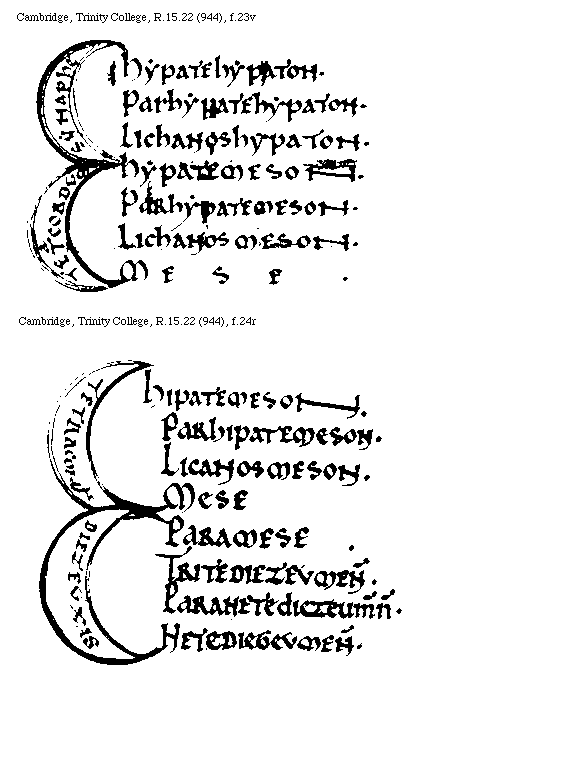 Cambridge, Trinity College, R.15.22 (944), f.23v
hypatehypaton.
Parhypatehypaton.
Lichanoshypaton.
hypatemeson.
Parhypatemeson.
Lichanosmeson.
Mese.
Cambridge, Trinity College, R.15.22 (944), f.24r
hipatemeson.
Parhipatemeson.
Licanosmeson.
Mese
Paramese.
Tritediezeumen̄.
Paranetediezeum̄n̄.
Netediezeumen̄.